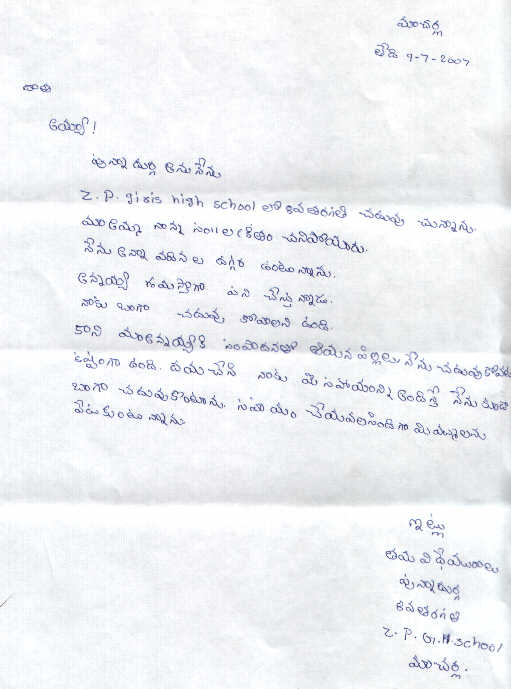 మాచర్ల
తేది 9-7-2007
అయ్యా!
దుర్గ అను నేను
Z. P. girls high school లో 8వతరగతి చదువు చున్నాను.
మా అమ్మ నాన్న సం॥ల క్రితం చనిపోయారు.
నేను అన్నా వదినల దగ్గర ఉంటున్నాను.
అన్నయ్య పని చేస్తున్నాడు.
నాకు బాగా చదువు కోవాలని ఉంది.
కాని మా అన్నయ్యకి సంపాదనతో తయన పిల్లలు నేను చదువు
కష్టంగా ఉంది. దయచేసి నాకు మీ సహాయాన్ని అందిస్తే నేను కూడా
బాగా చదువుకొంటాను. సహాయం చేయవలసిందిగా మిమ్మలను
వేడుకుంటున్నాను
ఇట్లు
తమ విధేయురాలు
8వతరగతి
Z. P. G. H. School
మాచర్ల.